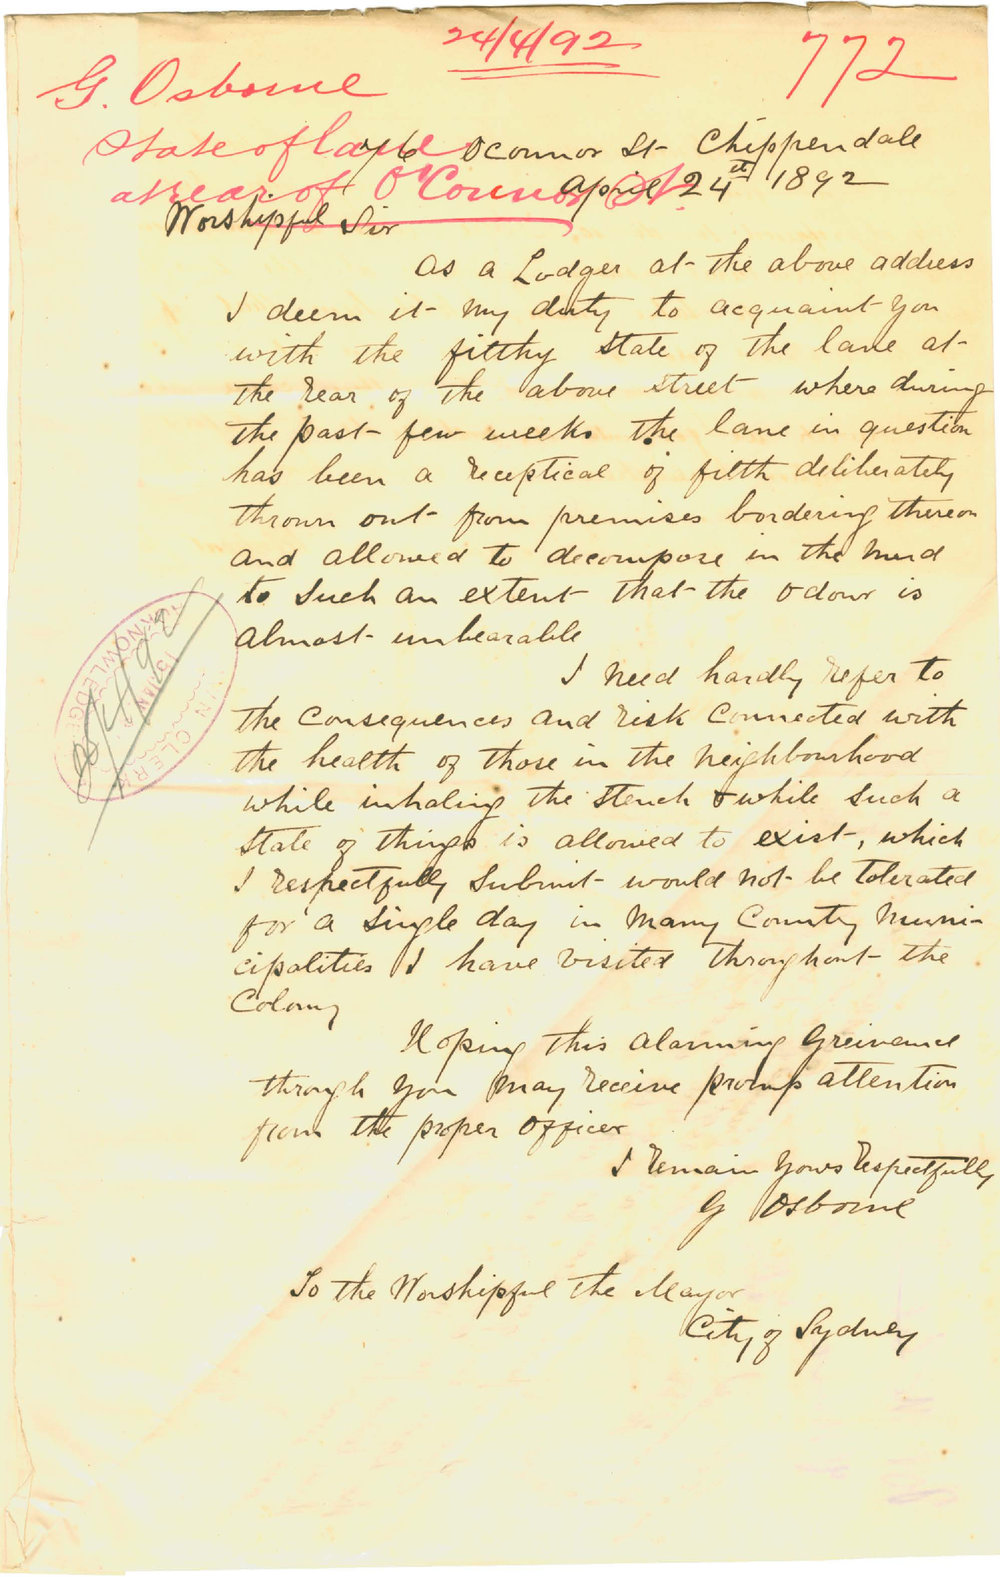 24/4/92
772
G. Osborne
State of lane
at rear of O'Connor St.
76 OConnor St Chippendale
April 24th 1892
Worshipful Sir
As a Lodger at the above address
I deem it my duty to acquaint you
with the filthy state of the lane at
the rear of the above street where during
the past few weeks the lane in question
has been a receptical of filth deliberately
thrown out from premises bordering thereon
and allowed to decompose in the mud
to such an extent that the odour is
almost unbearable
I need hardly refer to
the consequences and risk connected with
the health of those in the neighbourhood
while inhaling the stench & while such a
state of things is allowed to exist, which
I respectfully submit would not be tolerated
for a single day in many Country Muni-
cipalities I have visited throughout the
Colony
Hoping this alarming Greivance
through you may receive promp attention
from the proper Officer
I remain yours respectfully
G Osborne
To the Worshipful the Mayor
City of Sydney
CLERK
ACKNOWLEDG